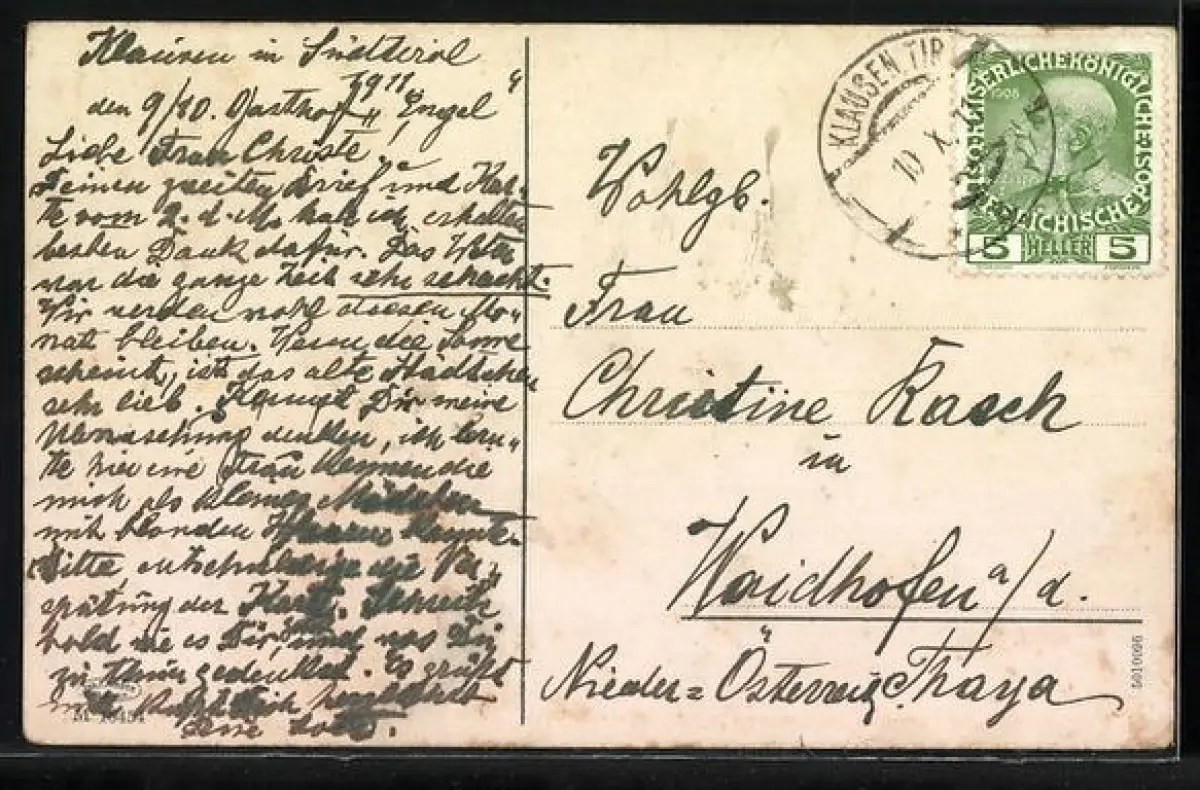 Klausen in Südtirol
1911
den 9/10. Gasthof „Engel“
Liebe Frau Christe,
Deinen zweiten Brief und Kar-
te vom 2. d. M. hab ich erhalten
besten Dank dafür. Das Wetter
war die ganze Zeit sehr schlecht.
Wir werden wohl diesen Mo„
nat bleiben. Wenn die Sonne
scheint, ist das alte Städtchen
sehr lieb. Kannst Dir meine
Überraschung denken, ich lern„
te hier eine Frau kennen die
mich als kleines Mädchen
mit blonden Haaren kannte.
Bitte entschuldige die Ver„
spätung der Karte. Schreib
bald wie es Dir, und was Du
zu thun gedenkst. Es grüßt
Dich herzlichst
Deine
M 18454
KLAUSEN TIROL
10 X 11
KAISERLICHE KÖNIGLICHE ÖSTERREICHISCHE POST
1908
5 HELLER 5
Wohlgb.
Frau
Christine Rasch
in
Waidhofen a/d.
Nieder=Österreich Thaya
5010096